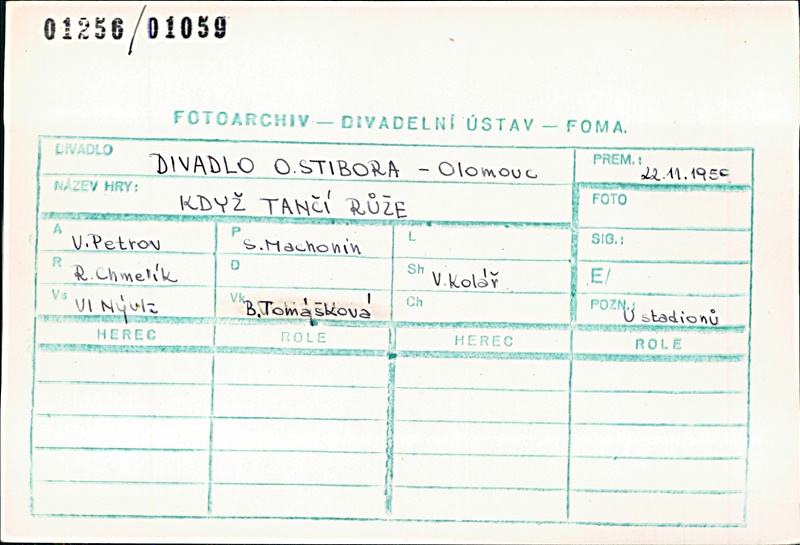 01256/01059
FOTOARCHIV — DIVADELNÍ ÚSTAV — FOMA.
DIVADLO DIVADLO O. STIBORA - Olomouc
PREM.: 22.11.195
NÁZEV HRY: KDYŽ TANČÍ RŮŽE
FOTO
A V. Petrov
P S. Machonin
L
SIG.:
R R. Chmelík
D
Sh V. Kolář
E/
Vs Vl Nývlt
Vk B. Tomášková
Ch
POZN.: U stadionů
HEREC ROLE HEREC ROLE